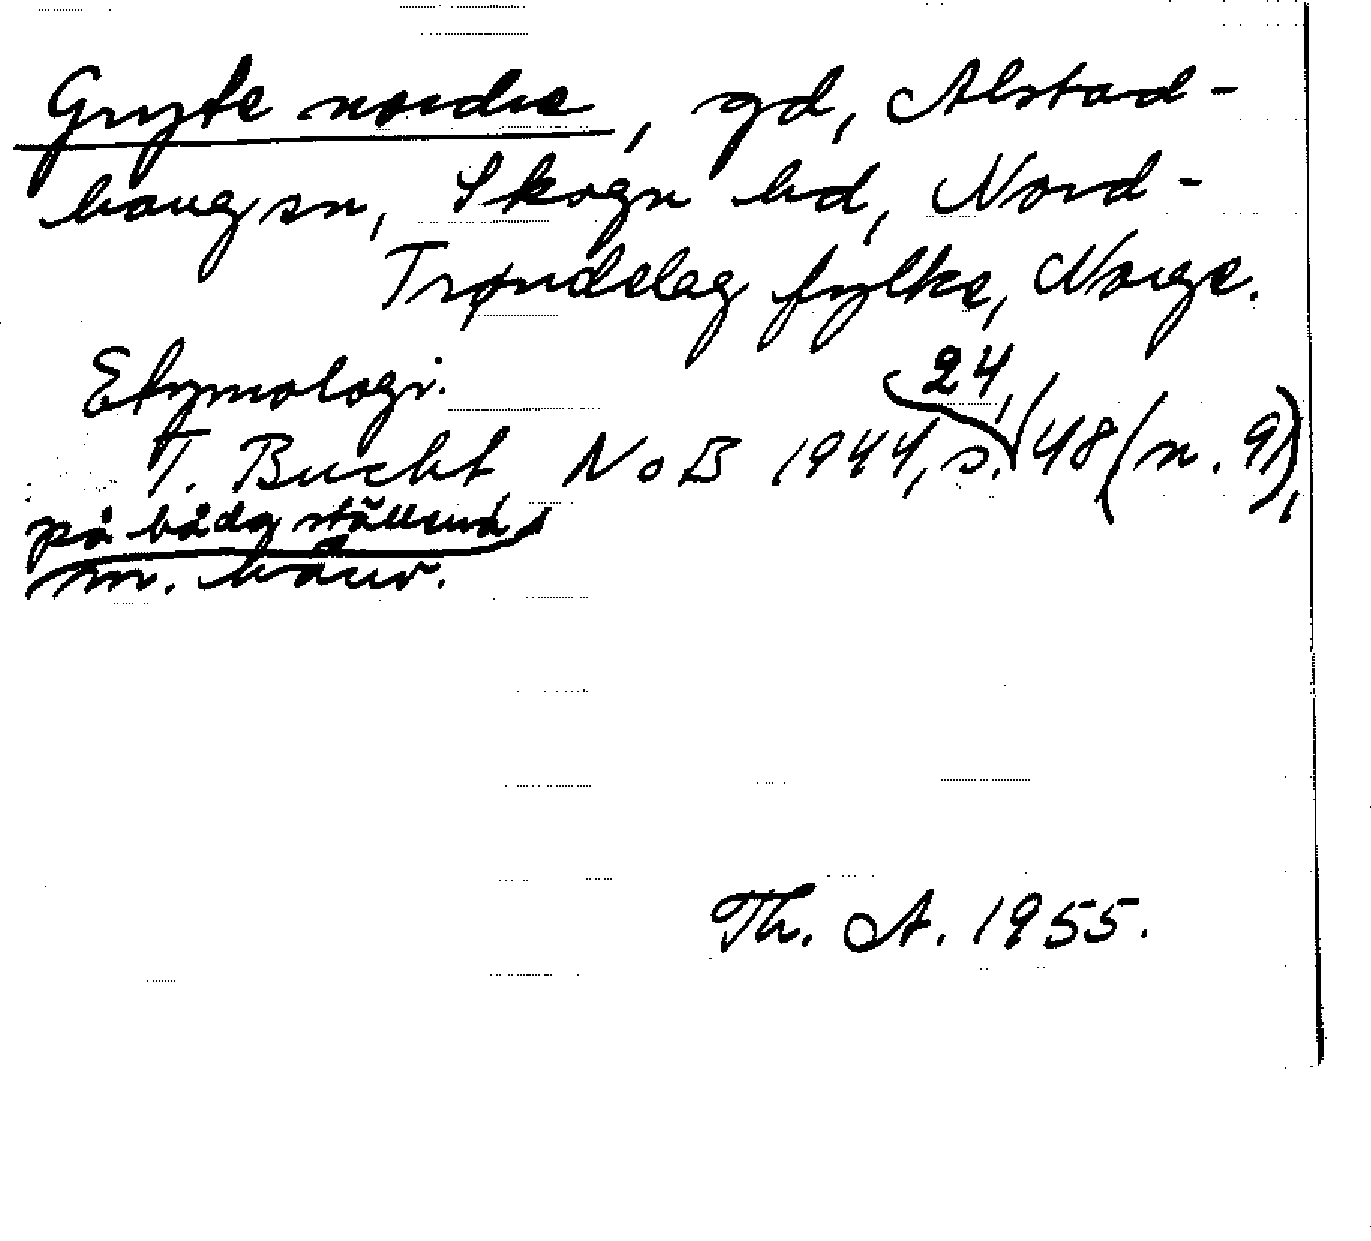 Gryte nordre, gd, Alstad-
haug sn, Skogn hd, Nord-
Trøndelag fylke, Norge.
Etymologi.
24,
T. Bucht NoB 1944, s. 48 (n. 9),
på båda ställena
m. hänv.
Th. A. 1955.